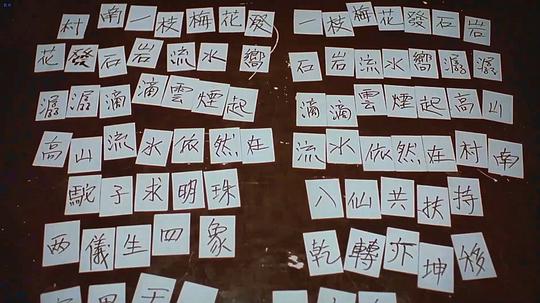 村南一枝梅花發 一枝梅花發石岩
花發石岩流水嚮 石岩流水嚮潺潺
潺潺滴滴雲煙起 滴滴雲煙起高山
高山流水依然在 流水依然在村南
駝子求明珠 八仙共扶持
两儀生四象 乾轉亦坤